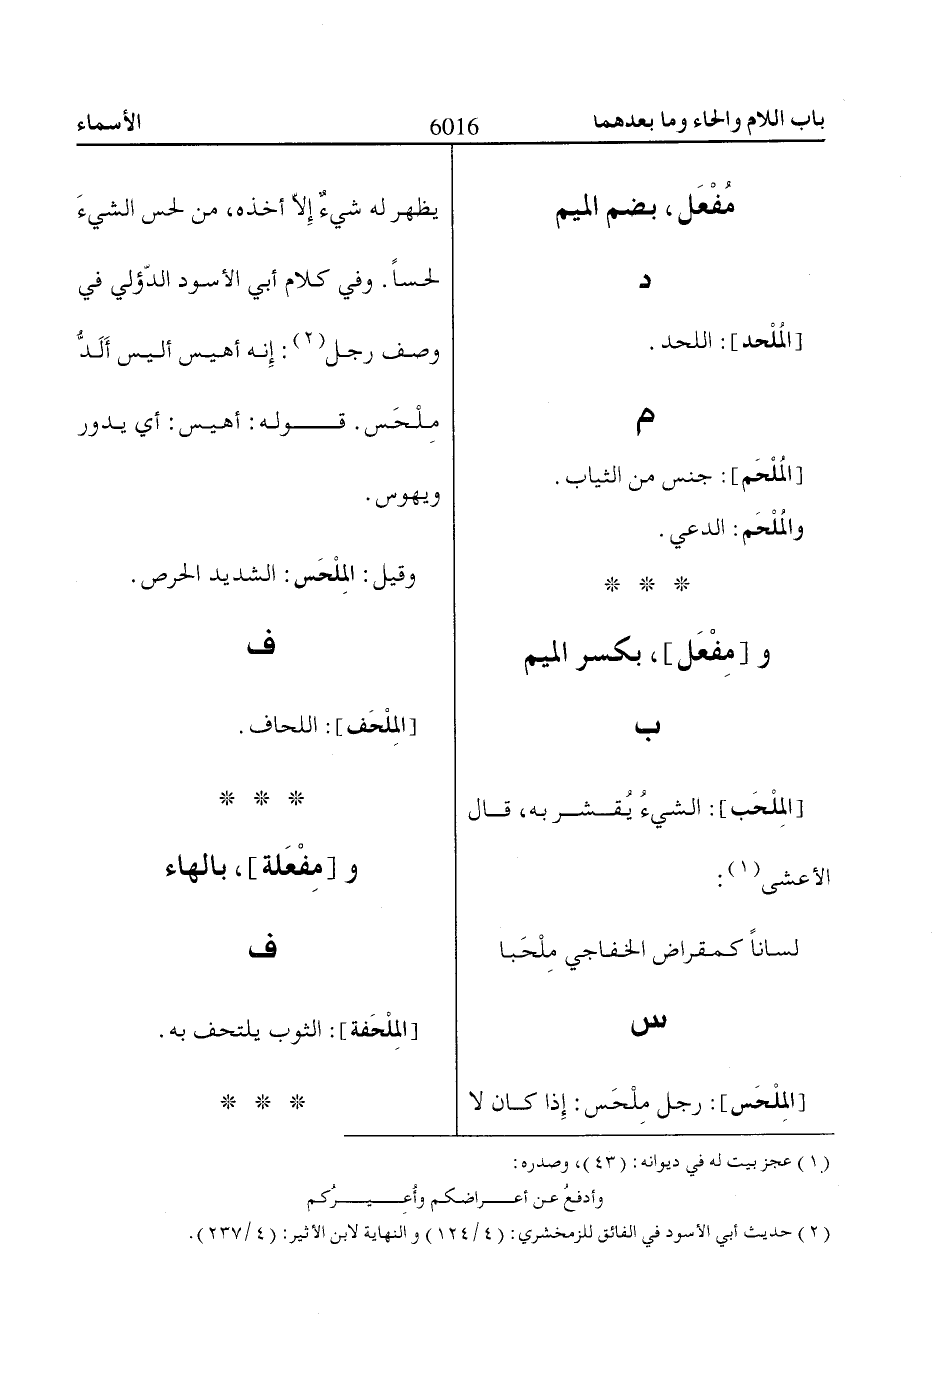 باب اللام والحاء وما بعدهما 6016 الأسماء
مُفْعَل، بضم الميم
د
[المُلْحد]: اللحد.
م
[المُلْحَم]: جنس من الثياب.
والمُلْحَم: الدعي.
* * *
و [مِفْعَل]، بكسر الميم
ب
[المِلْحَب]: الشيءُ يُقـشـر به، قـال
الأعشى(١):
لسـاناً كـمـقراض الخـفـاجي مِلْحَبـا
س
[المِلْحَس]: رجـل مِلْحَس: إِذا كـان لا
يظهر له شيءٌ إِلاّ أخذه، من لحس الشيءَ
لحسـاً. وفي كـلام أبي الأسـود الدّؤلي في
وصـف رجـل(٢): إِنـه أهـيـس أليـس أَلَدُّ
مِـلْـحَـس. قـولـه: أهـيـس: أي يـدور
ويهوس.
وقيل: المِلْحَس: الشديد الحرص.
ف
[المِلْحَف]: اللحاف.
* * *
و [مِفْعَلة]، بالهاء
ف
[المِلْحَفة]: الثوب يلتحف به.
* * *
(١) عجز بيت له في ديوانه: (٤٣)، وصدره:
وأدفعُ عـن أعـراضكـم وأُعـيـرُكم
(٢) حديث أبي الأسود في الفائق للزمخشري: (٤/ ١٢٤) و النهاية لابن الأثير: (٤/ ٢٣٧).